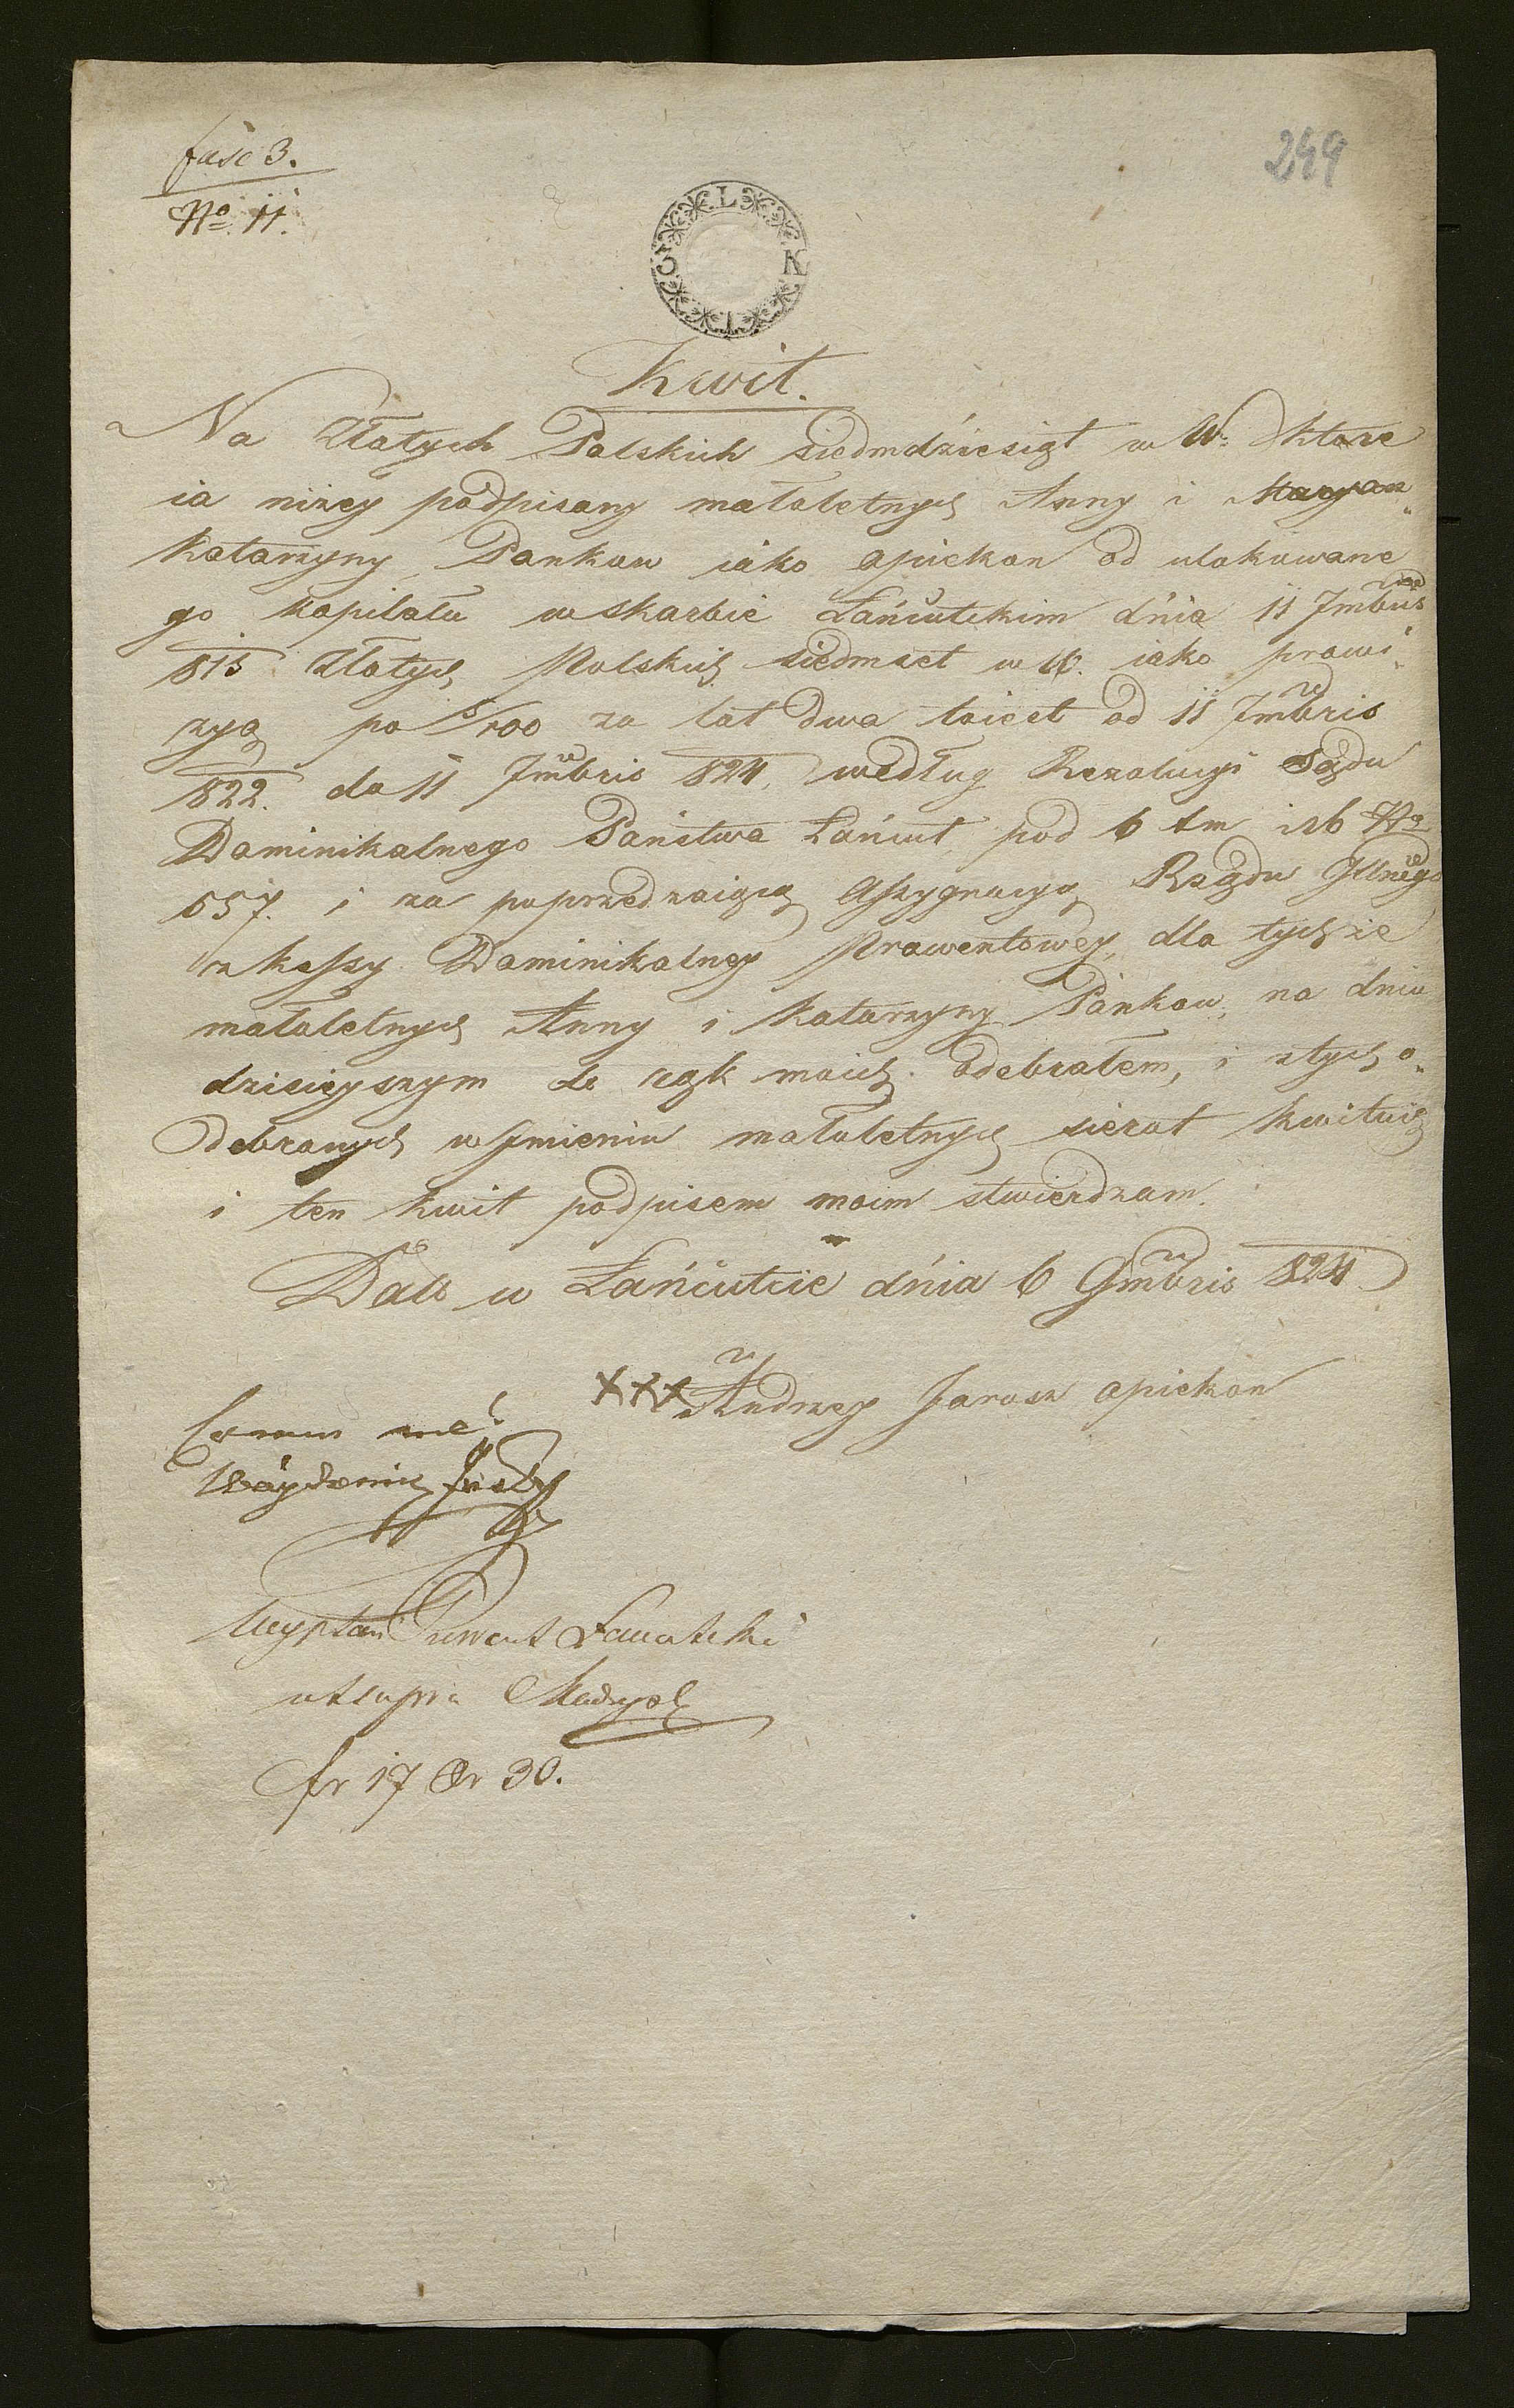 fasc 3.
No 11.
249
C L K
Kwit.
Na Złotych Polskich siedmdziesiąt w W: ktore
ia niżey podpisany małoletnych Anny i Maryan
Katarzyny Pankow iako opiekon od ulokowane
go kapitału w skarbie Łańcutckim dnia 11 7mbris
815 Złotych Polskich siedmset w W. iako prowi
zyą po 5/100 za lat dwa to iest od 11 7mbris
822. do 11 7mbris 824. według Rezolucyi Sądu
Dominikalnego Państwa Łańcut pod 6 t.m. i r.b No
657. i za poprzedzaiącą Assygnacyą Rządu Gllnego
z kassy Dominikalney Prowentowey, dla tychże
małoletnych Anny i Katarzyny Pankow, na dniu
dzisieyszym do rąk moich odebrałem, i z tych o
debranych w Jmieniu małoletnych sierot kwituię
i ten kwit podpisem moim stwierdzam.
Dato w Łańcutcie dnia 6 9mbris 824
XXX Andrzey Jarosz opiekon
Coram me
Prowent Łancutcki
ut supra
fr 17 Xr 30.